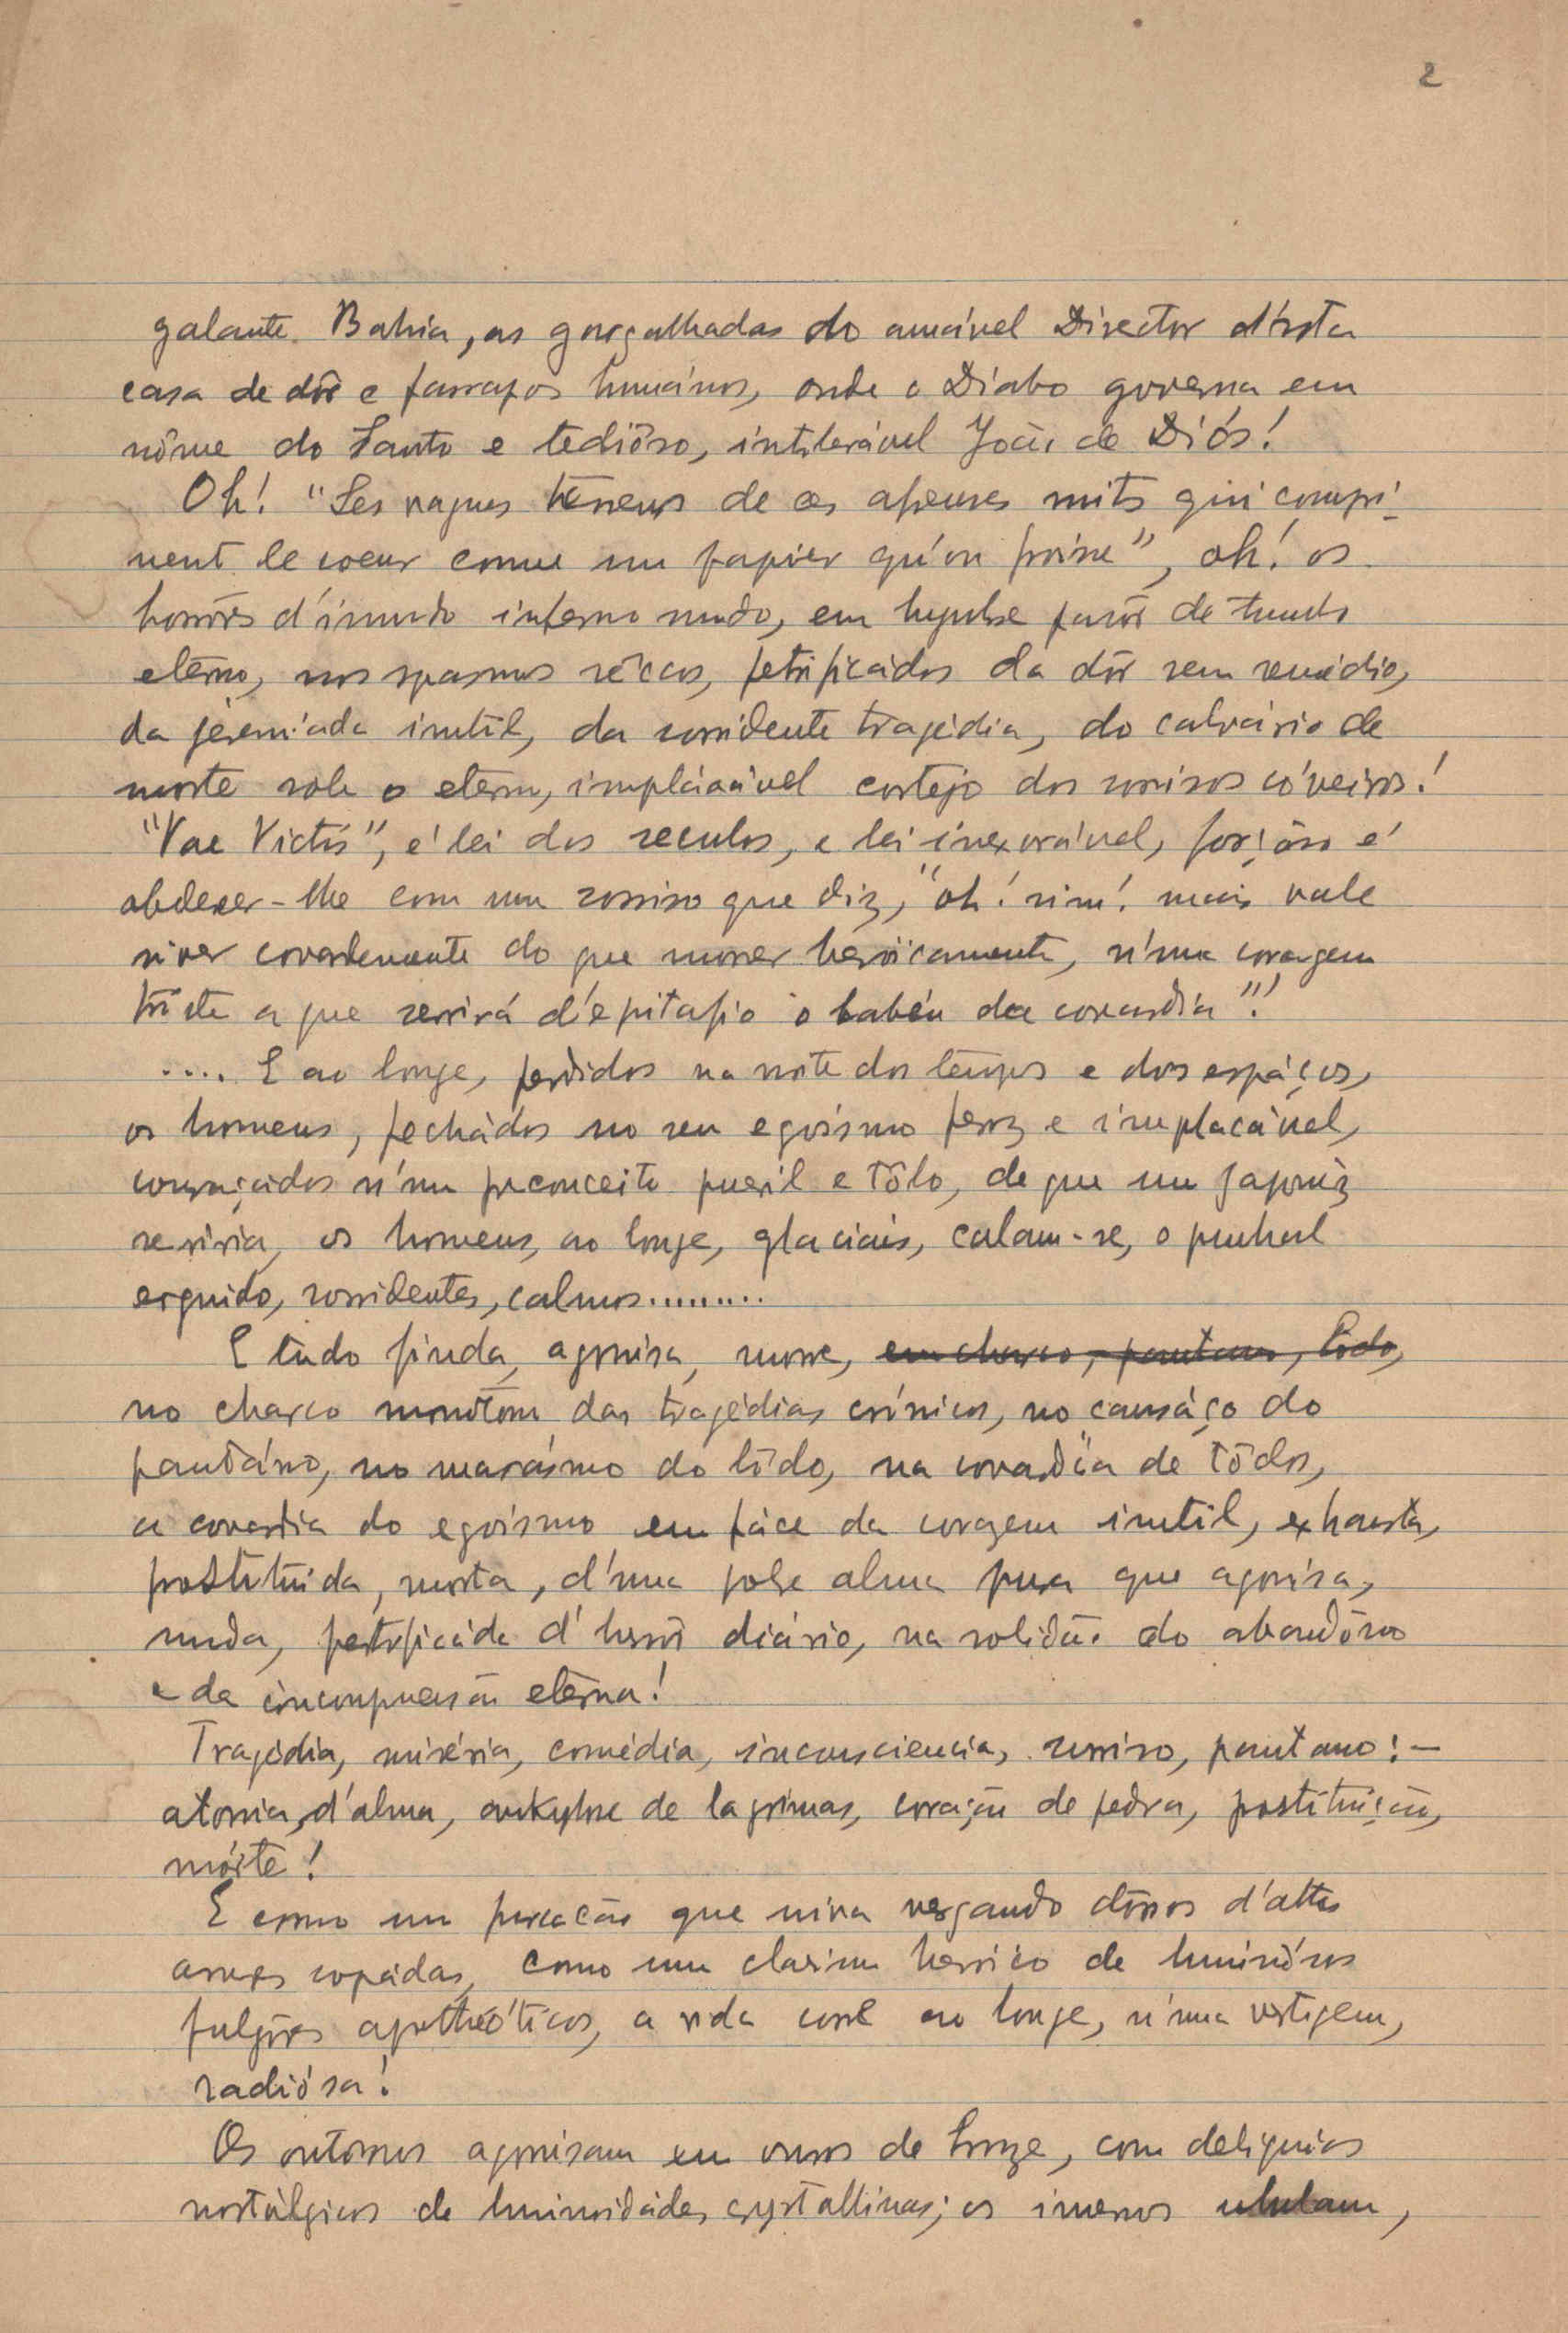 2
galante Bahia, as gargalhadas do amável Director d'esta
casa de dôr e farrapos humanos, onde o Diabo governa em
nôme do Santo e tediôso, intolerável João de Diós!
Oh! "Les vagues terreurs de ces afreuses nuits qui compri-
ment le coeur comme un papier qu'on froisse", oh! os
horrôres d'imundo inferno mudo, em
etêrno, nos spasmos sêccos, petrificádos da dôr sem remédio,
da jeremiada inutil, da sorridente tragédia, do calvário de
morte sob o eterno, implácavel cortejo dos sorrisos cóveiros!
"Vae Victis", é lei dos seculos, e lei inexorável, forçôso é
obdecer-lhe com um sorriso que diz, "oh! sim! mais vale
viver covardemente do que morrer heróicamente, n'uma coragem
triste a que servirá d'epitafio o labéu da covardia"!
.... E ao longe, perdidos na noite dos tempos e dos espáços,
os homens, fechádos no seu egoismo feroz e implacável,
couraçados n'um preconceito pueril e tôlo, de que um
se riria, os homens, ao longe, glaciais, calam-se, o punhal
erguido, sorridentes, calmos.........
E tudo finda, agonisa, morre, em charco, pantano, lôdo,
no charco monótono das tragédias crónicas, no cansáço do
pantâno, no marásmo do lôdo, na covardia de tôdos,
a covardia do egoismo em fáce da coragem inutil, exhausta,
prostituida, morta, d'uma pobre alma pura que agonisa,
muda, petrificáda d'horrôr diário, na solidão do abandôno
e da incompreensão etêrna!
Tragédia, miséria, comédia, inconsciencia, sorriso, pantano! -
atonia, d'alma, ankylose de lagrimas, coração de pedra, prostituição,
mórte!
E como um furacão que viva vergando dórsos d'altas
arvores copádas, como um clarim heroico de luminósos
fulgôres apotheóticos, a vida corre ao longe, n'uma vertigem,
radiósa!
Os outonos agonisam em ouros de bronze, com deliquios
nostálgicos de luminosidádes crystallinas; os invernos ululam,